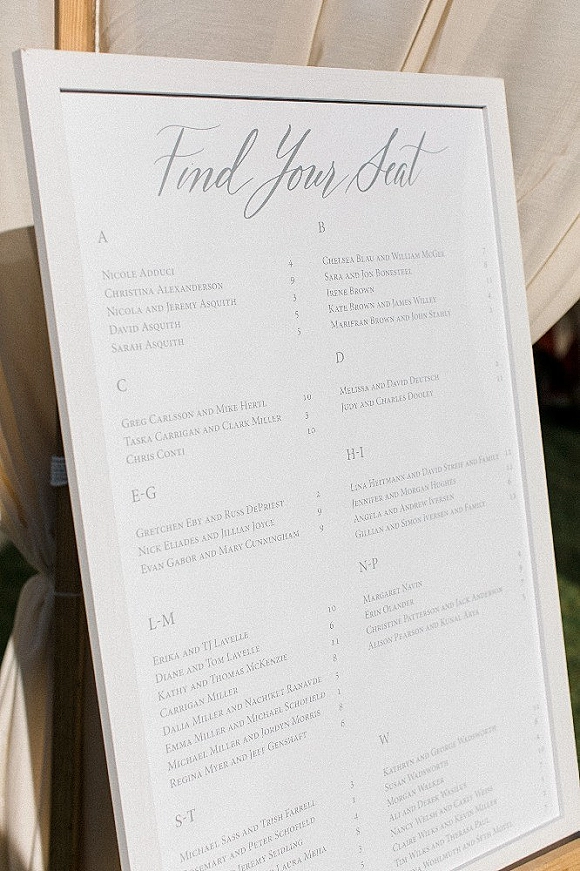 Find Your Seat
A
Nicole Adduci 4
Christina Alexanderson 9
Nicola and Jeremy Asquith 3
David Asquith 5
Sarah Asquith 5
B
Chelsea Blau and William McGee 7
Sara and Jon Bonesteel
Irene Brown
Kate Brown and James Willey
Marifran Brown and John Stahle
C
Greg Carlsson and Mike Hertl 10
Taska Carrigan and Clark Miller 3
Chris Conti 10
D
Melissa and David Deutsch
Judy and Charles Dooley
E-G
Gretchen Eby and Russ DePriest 2
Nick Eliades and Jillian Joyce 9
Evan Gabor and Mary Cunningham 9
H-I
Lina Heitmann and David Streif and Family 12
Jennifer and Morgan Hughes
Angela and Andrew Iversen
Gillian and Simon Iversen and Family
L-M
Erika and TJ Lavelle 10
Diane and Tom Lavelle 6
Kathy and Thomas McKenzie 11
Carrigan Miller 8
Dalia Miller and Nachiket Ranavde 5
Emma Miller and Michael Schofield 1
Michael Miller and Jordyn Morris 8
Regina Myer and Jeff Genshaft 6
N-P
Margaret Naven
Erin Olander
Christine Patterson and Jack Anderson
Alison Pearson and Kunal Arya
S-T
Michael Sass and Trish Farrell 3
Rosemary and Peter Schofield 1
Jeremy Seidling 4
Laura Meha 8
W
Kathryn and George Wadsworth
Susan Wadsworth
Morgan Walker
Ali and Derek Wasiluk
Nancy Welsh and Casey Weiss
Claire Wilks and Kevin Miller
Tim Wilks and Theresa Paul
Wohlmuth and Seth